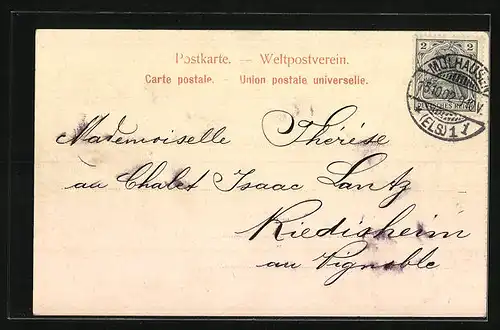 Postkarte. — Weltpostverein.
Carte postale. — Union postale universelle.
2 2
MÜLHAUSEN
(ELS) 1
Mademoiselle Thérèse
au Chalet Isaac Lantz
Riedisheim
au Vignoble